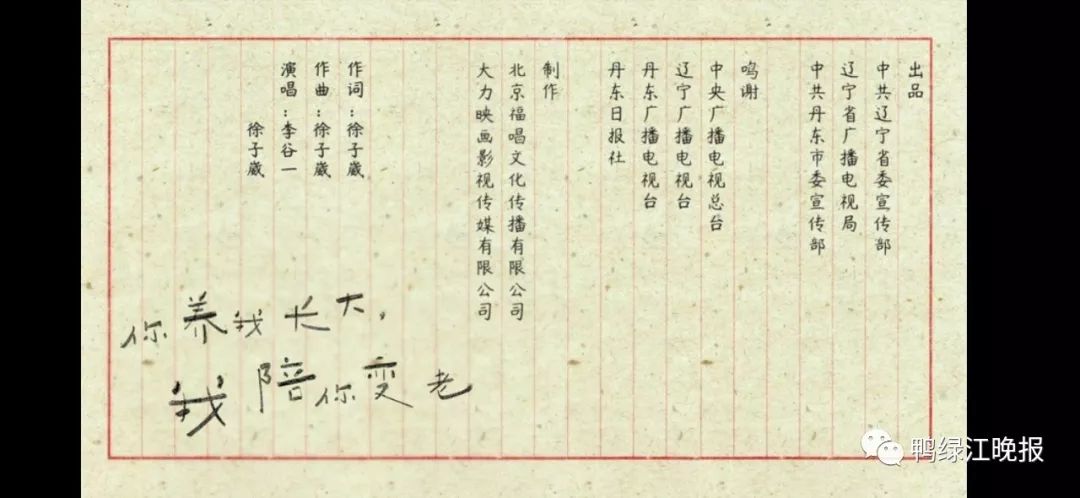 出品
中共辽宁省委宣传部
辽宁省广播电视局
中共丹东市委宣传部
鸣谢
中央广播电视总台
辽宁广播电视台
丹东广播电视台
丹东日报社
制作
北京福唱文化传播有限公司
大力映画影视传媒有限公司
作词：徐子崴
作曲：徐子崴
演唱：李谷一
徐子崴
你养我长大，
我陪你变老
鸭绿江晚报